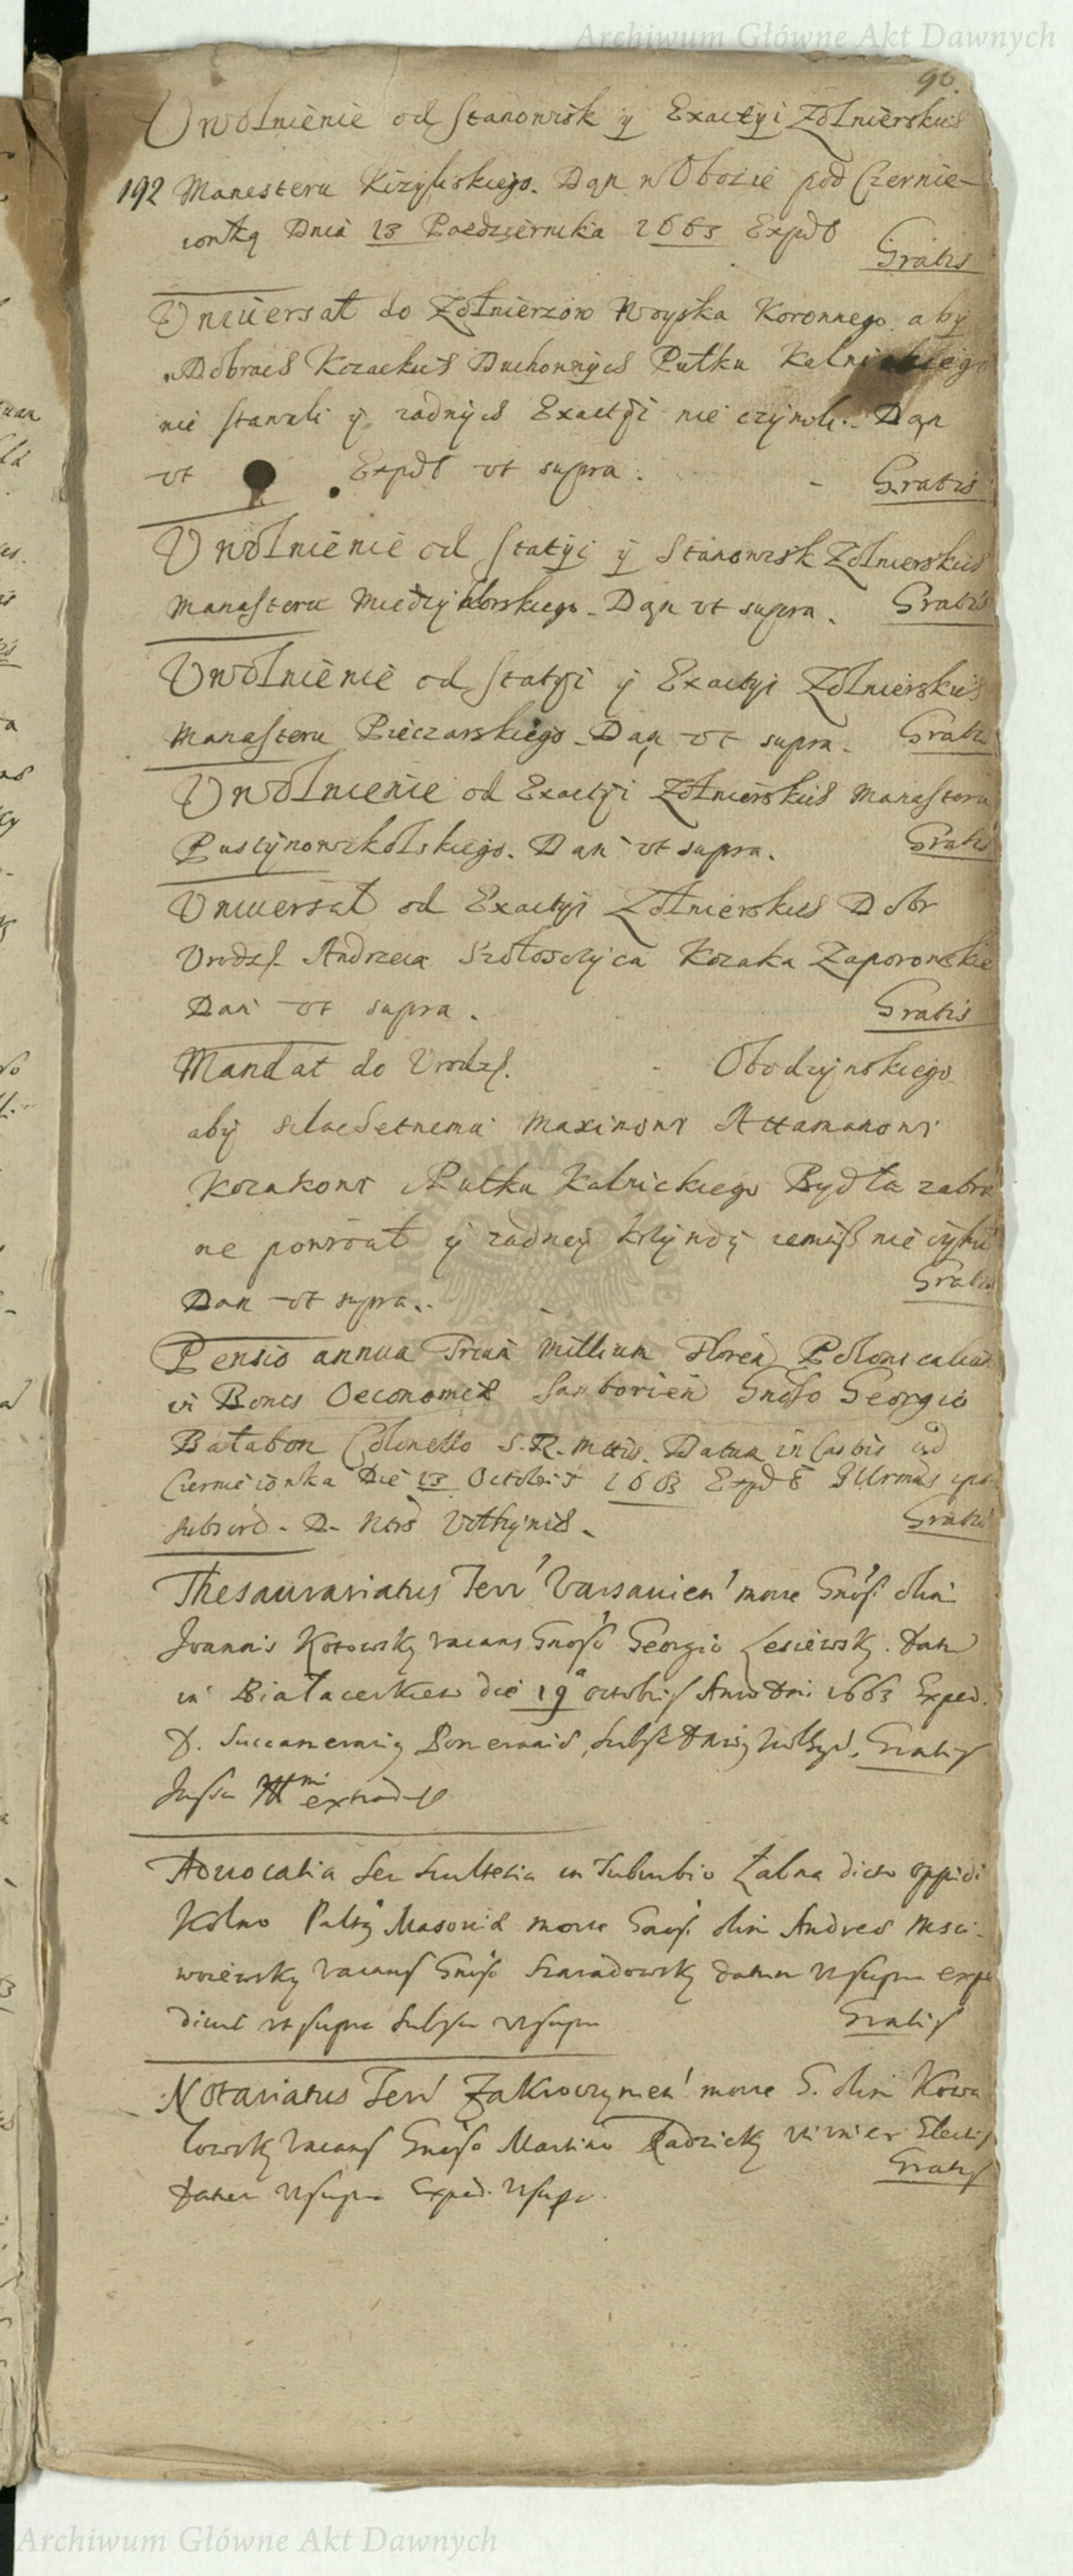 Archiwum Główne Akt Dawnych
96.
Uwolnienie od stanowisk y Exactyi Zołnierskich
192 Manesteru Kizyliskiego. Dan w Obozie pod Czernie-
iowką Dnia 13 Pazdziernika 1663 Expdt
Gratis
Uniwersał do Zołnierzow Woyska Koronnego aby
w Dobrach Kozackich Duchownych Pułku Kalnickiego
nie stawali y zadnych Exactyi nie czynili. Dan
vt Expdt vt supra.
Gratis
Uwolnienie od statyi y Stanowisk Zołnierskich
Manasteru Miedzyhorskiego. Dan vt supra. Gratis
Uwolnienie od statyi y Exactyi Zołnierskich
Manasteru Pieczarskiego. Dan vt supra. Gratis
Uwolnienie od Exactyi Zołnierskich Manasteru
Pustynomikolskiego. Dan vt supra. Gratis
Uniwersał od Exactyi Zołnierskich Dobr
Urodz. Andrzeia Kozaka Zaporowskie
Dan vt supra. Gratis
Mandat do Urodz. Obodzynskiego
aby szlachetnemu Maximowi Attamanowi
Kozakowi Pułku Kalnickiego Bydła zabra
ne powrocił y zadney krzywdy iemuß nie czynił
Gratis
Dan vt supra.
Pensio annua Trium Millium Floren Polonicaliu
in Bonis Oeconomiæ Samborien Gnoso Georgio
Bałaban Colonello S. R. Mttis. Datum in Castris ad
Czernieiowka Die 13 Octobris 1663 Expdt Illrmus
subscrd. D. Ntrs Vothyniæ.
Gratis
Thesaurariatus Terr Varsavien morte Gnosi olim
Joannis Kotowsky vacans Gnoso Georgio Lesiewsky. Datu
in Białacerkiew die 19ª octobris Anno Dni 1663 Exped.
D. Gratis
Jussu extradiss
Advocatia seu scultetia in suburbio Łabna dicto oppidi
Kolno Paltus Masoviæ morte Gnosi olim Andreæ Msci-
woiewsky vacans Gnoso Szaradowsky datum vt supra expe
diuit vt supra subscr vt supra Gratis
Notariatus Terr Zakroczymen morte G. olim Kowa
lowsky vacans Gnoso Martino Radzicky Electis
Gratis
Datum vt supra Exped. vt supr.
Archiwum Główne Akt Dawnych